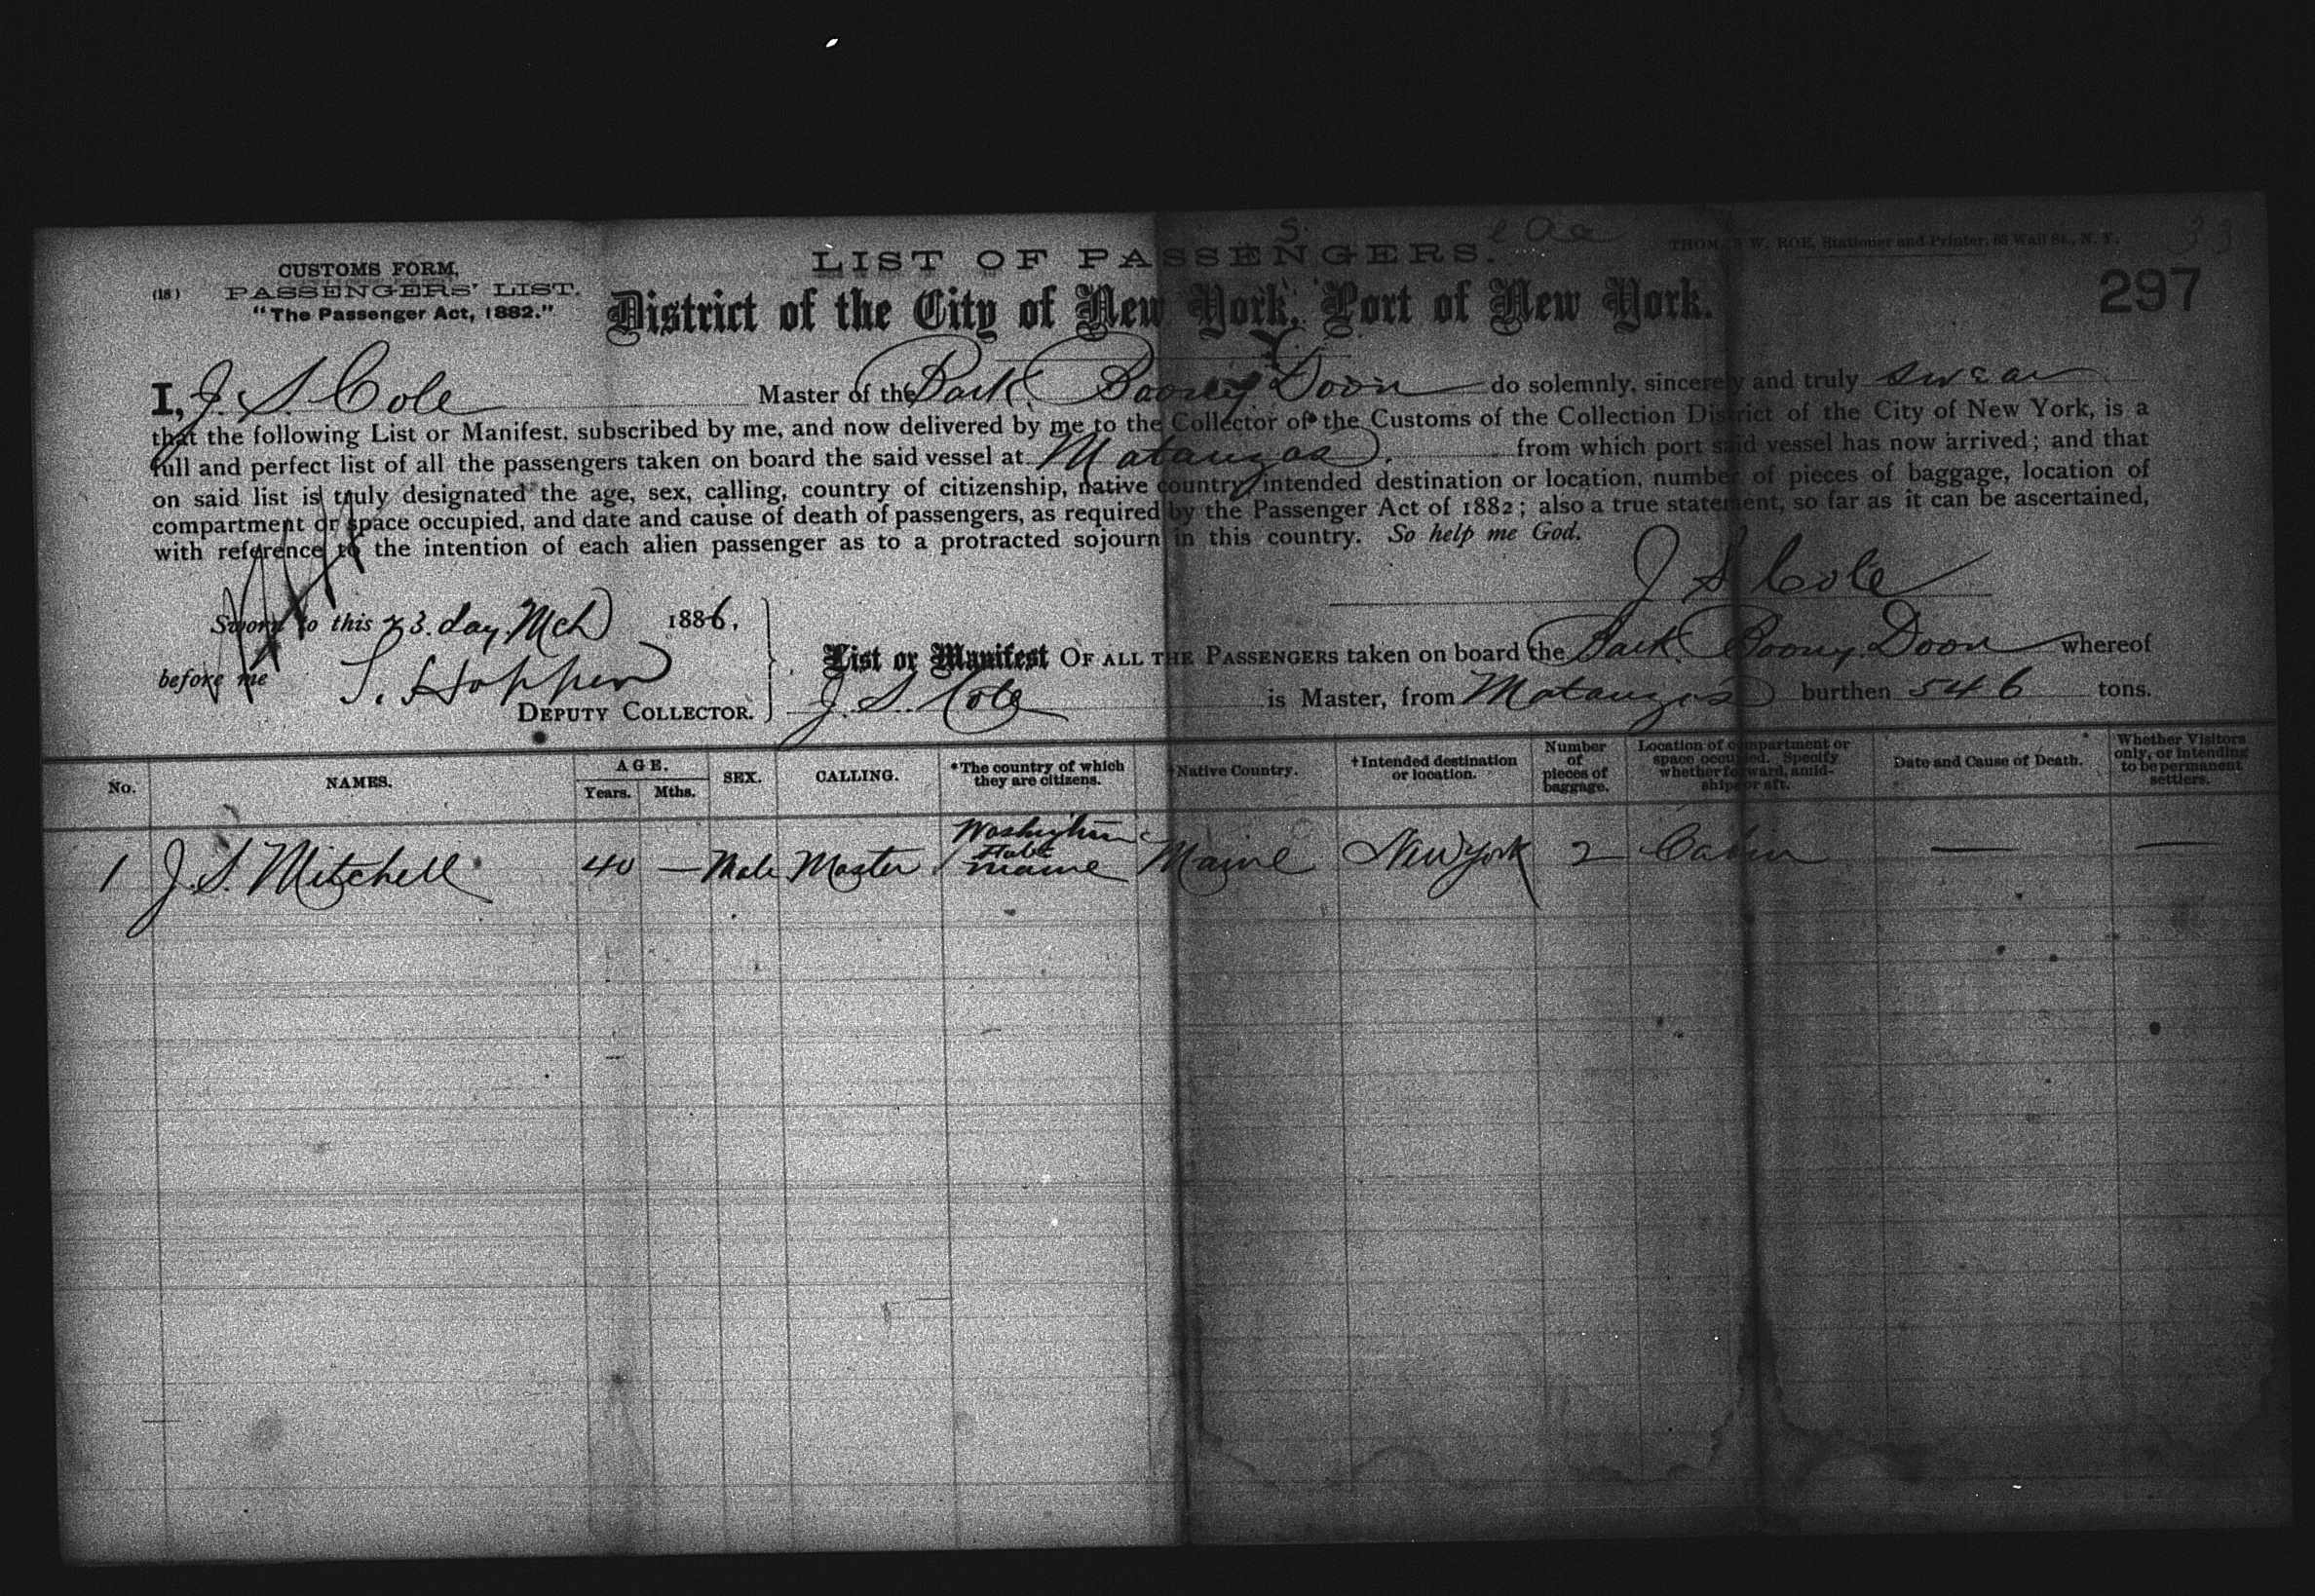 LIST OF PASSENGERS.
THOMAS W. ROE, Stationer and Printer, 63 Wall St., N. Y.
33
CUSTOMS FORM,
(18) PASSENGERS' LIST.
"The Passenger Act, 1882."
District of the City of New York, Port of New York.
297
I, J. S. Cole Master of the Bark Boony Doon do solemnly, sincerely and truly swear
that the following List or Manifest, subscribed by me, and now delivered by me to the Collector of the Customs of the Collection District of the City of New York, is a
full and perfect list of all the passengers taken on board the said vessel at Matanzas from which port said vessel has now arrived; and that
on said list is truly designated the age, sex, calling, country of citizenship, native country, intended destination or location, number of pieces of baggage, location of
compartment or space occupied, and date and cause of death of passengers, as required by the Passenger Act of 1882; also a true statement, so far as it can be ascertained,
with reference to the intention of each alien passenger as to a protracted sojourn in this country. So help me God.
J S Cole
Sworn to this 23. day Mch 1886,
before me S. Hopper
DEPUTY COLLECTOR.
List or Manifest OF ALL THE PASSENGERS taken on board the Bark Boony Doon whereof
J. S. Cole is Master, from Matanzas burthen 546 tons.
No. NAMES. AGE. Years. Mths. SEX. CALLING. *The country of which they are citizens. †Native Country. †Intended destination or location. Number of pieces of baggage. Location of compartment or space occupied. Specify whether forward, amidship or aft. Date and Cause of Death. Whether Visitors only, or intending to be permanent settlers.
1 J. S. Mitchell 40 — Male Master Washington State Maine Maine New York 2 Cabin — —